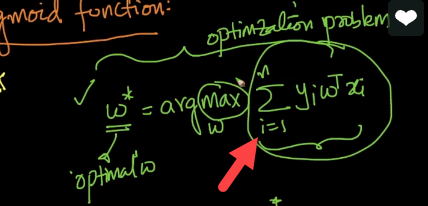 gmoid function:
optimization problem
w* = argmax_w ∑_{i=1}^{n} yᵢwᵀxᵢ
optimal w
*